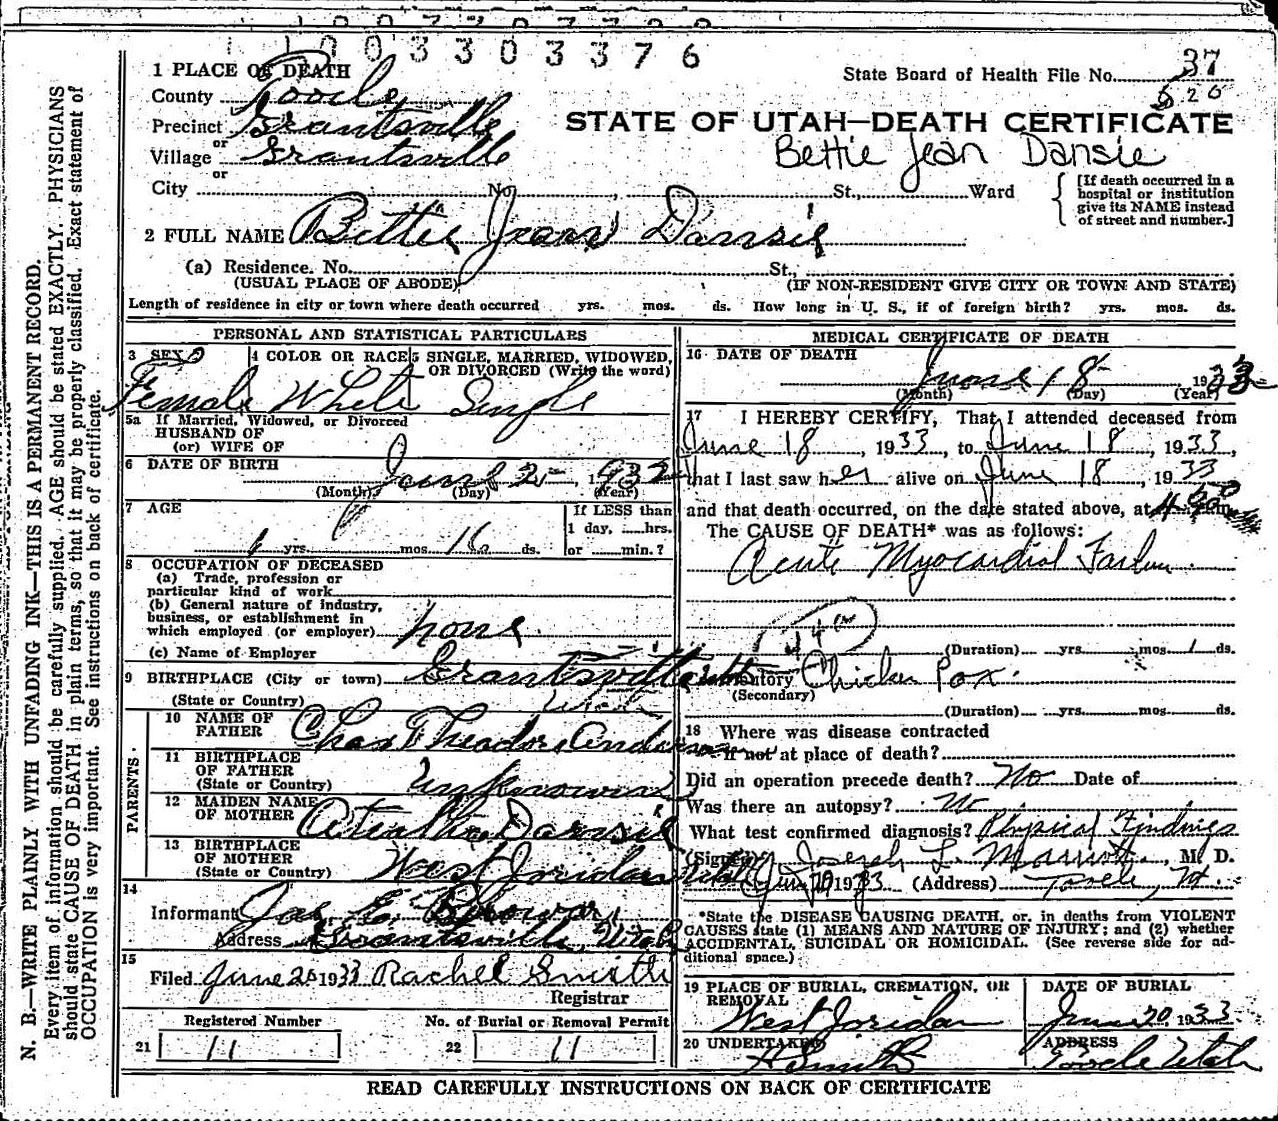 1003303376
1 PLACE OF DEATH
State Board of Health File No. 37
County Tooele
Precinct Grantsville
STATE OF UTAH—DEATH CERTIFICATE
or
Village Grantsville
Bettie Jean Dansie
or
City No. , St., Ward
[If death occurred in a
hospital or institution
give its NAME instead
of street and number.]
2 FULL NAME Bettie Jean Dansie
(a) Residence. No. St.,
(USUAL PLACE OF ABODE) (IF NON-RESIDENT GIVE CITY OR TOWN AND STATE)
Length of residence in city or town where death occurred yrs. mos. ds. How long in U. S., if of foreign birth? yrs. mos. ds.
PERSONAL AND STATISTICAL PARTICULARS
3 SEX 4 COLOR OR RACE 5 SINGLE, MARRIED, WIDOWED,
OR DIVORCED (Write the word)
Female White Single
5a If Married, Widowed, or Divorced
HUSBAND OF
(or) WIFE OF
6 DATE OF BIRTH June 2 1932
(Month) (Day) (Year)
7 AGE If LESS than
1 day, hrs.
1 yrs. mos. 16 ds. or min.?
8 OCCUPATION OF DECEASED
(a) Trade, profession or
particular kind of work
(b) General nature of industry,
business, or establishment in
which employed (or employer) none
(c) Name of Employer
9 BIRTHPLACE (City or town) Grantsville
(State or Country) Utah
PARENTS.
10 NAME OF
FATHER Chas Theador Anderson
11 BIRTHPLACE
OF FATHER
(State or Country) Unknown
12 MAIDEN NAME
OF MOTHER Dansie
13 BIRTHPLACE
OF MOTHER
(State or Country) West Jordan Utah
14
Informant Jas E.
Address Grantsville, Utah
15
Filed June 20 1933 Rachel Smith
Registrar
Registered Number No. of Burial or Removal Permit
21 11 22 11
MEDICAL CERTIFICATE OF DEATH
16 DATE OF DEATH
June 18 1933
(Month) (Day) (Year)
17 I HEREBY CERTIFY, That I attended deceased from
June 18, 1933, to June 18, 1933,
that I last saw her alive on June 18, 1933
and that death occurred, on the date stated above, at
The CAUSE OF DEATH* was as follows:
Acute Myocardial Failure
(Duration) yrs. mos. 1 ds.
Contributory Chicken Pox.
(Secondary)
(Duration) yrs. mos. ds.
18 Where was disease contracted
if not at place of death?
Did an operation precede death? No Date of
Was there an autopsy? No
What test confirmed diagnosis? Physical Findings
(Signed) Joseph L. Marriott, M. D.
1933 (Address) Tooele, Ut.
*State the DISEASE CAUSING DEATH, or, in deaths from VIOLENT
CAUSES state (1) MEANS AND NATURE OF INJURY; and (2) whether
ACCIDENTAL, SUICIDAL OR HOMICIDAL. (See reverse side for ad-
ditional space.)
19 PLACE OF BURIAL, CREMATION, OR
REMOVAL
West Jordan
DATE OF BURIAL
June 20, 1933
20 UNDERTAKER
Smith
ADDRESS
Tooele Utah
READ CAREFULLY INSTRUCTIONS ON BACK OF CERTIFICATE
N. B.—WRITE PLAINLY WITH UNFADING INK—THIS IS A PERMANENT RECORD.
Every item of information should be carefully supplied. AGE should be stated EXACTLY. PHYSICIANS
should state CAUSE OF DEATH in plain terms, so that it may be properly classified. Exact statement of
OCCUPATION is very important. See instructions on back of certificate.